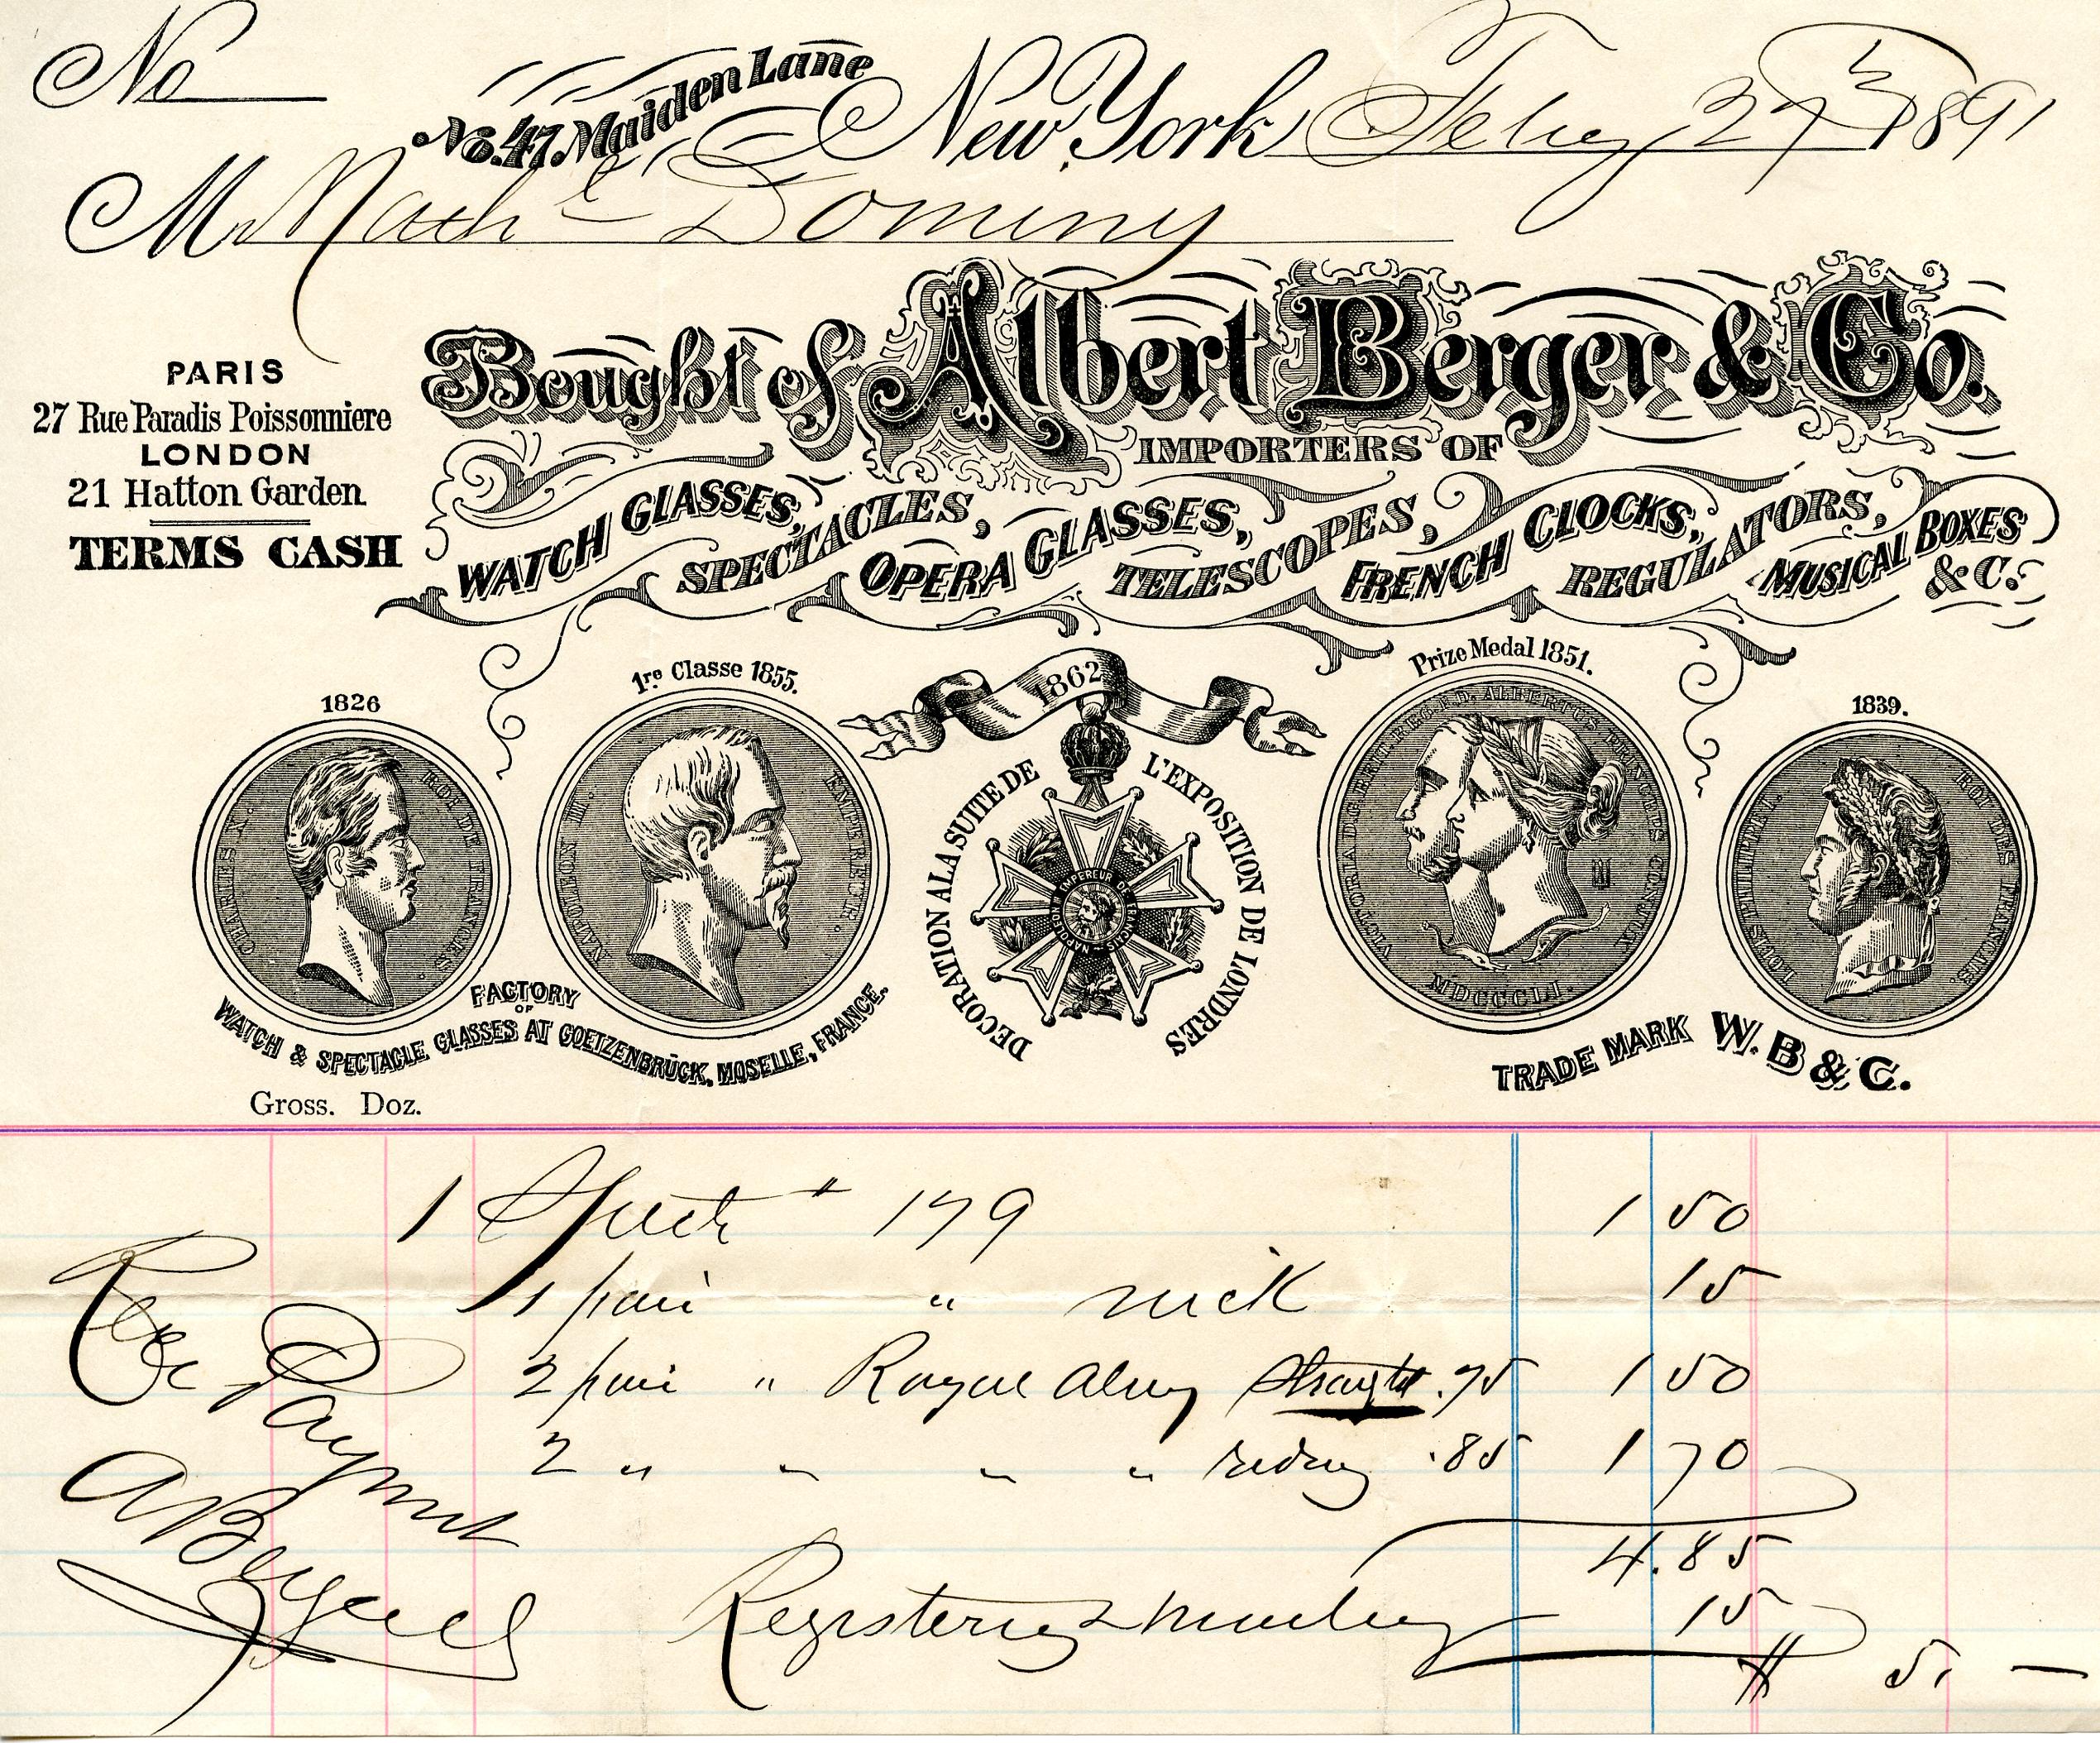 No
No. 47. Maiden Lane New York Feby 27th 1891
M Nathl Dominy
Bought of Albert Berger & Co.
IMPORTERS OF
WATCH GLASSES, SPECTACLES, OPERA GLASSES, TELESCOPES, FRENCH CLOCKS, REGULATORS, MUSICAL BOXES & C.
PARIS
27 Rue Paradis Poissonniere
LONDON
21 Hatton Garden
TERMS CASH
1826
CHARLES X. ROI DE FRANCE.
1re Classe 1855.
NAPOLEON III. EMPEREUR.
1862
DECORATION A LA SUITE DE L'EXPOSITION DE LONDRES
NAPOLEON EMPEREUR DES FRANCAIS
Prize Medal 1851.
VICTORIA D.G. BRIT. REG. F.D. ALBERTUS PRINCEPS CONJUX
MDCCCLI.
1839.
LOUIS PHILIPPE I. ROI DES FRANCAIS.
FACTORY
OF
WATCH & SPECTACLE GLASSES AT GOETZENBRÜCK, MOSELLE, FRANCE.
TRADE MARK W. B & C.
Gross. Doz.
1 179 1 50
1 pair " nick 15
2 pair " Royal Alloy Straight .75 1 50
2 " " " " riding .85 1 70
4.85
Registering & mailing 15
$ 5. —
Rec Paymt
A Berger & C